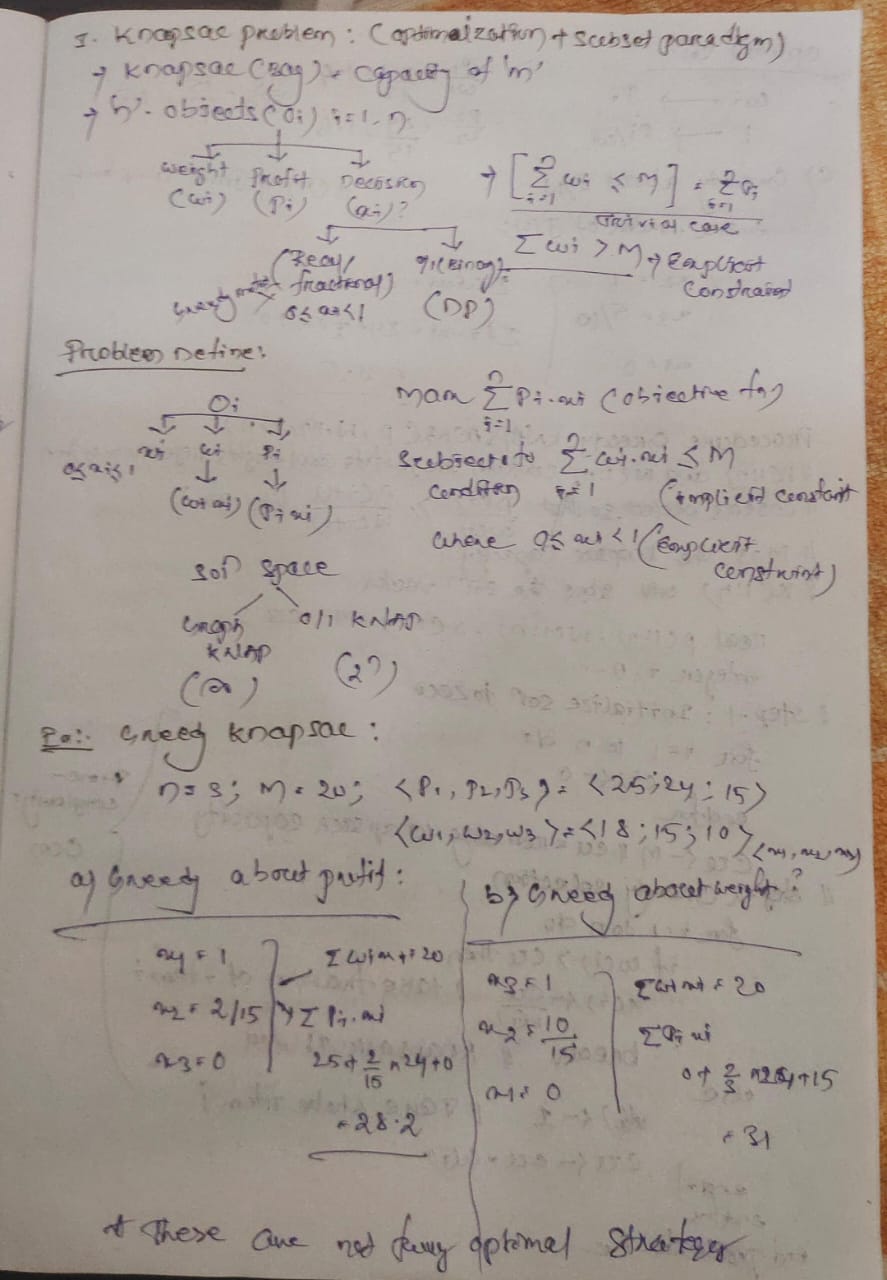 I. Knapsac problem: (optimaization + Subset paradigm)
→ Knapsac (Bag) - Capacity of 'm'
→ 'n' - objects (Oi) i=1..n
weight Profit Decission
(wi) (Pi) (xi)?
→ [n∑i=1 wi ≤ M] = n∑i=1 Pi
trivial case
∑wi > M → Explicit
Constraint
(Real/
fractional)
0≤xi≤1
Greedy
(DP)
Problem Define:
Oi
xi wi Pi
0≤xi≤1
(wi xi) (Pi xi)
Max n∑i=1 Pi.xi (objective fn)
Subject to n∑i=1 wi.xi ≤ M
condition (implicit constant
where 0≤ xi ≤1 (explicit
constraint)
Sol^n Space
0/1 KNAP
KNAP
(∞) (2^n)
Ex:- Greedy Knapsac:
n=3; M=20; <P1, P2, P3> = <25; 24; 15>
<w1, w2, w3> = <18; 15; 10> <x1, x2, x3>
a) Greedy about profit:
x1 = 1 ∑wixi = 20
x2 = 2/15 ∑Pi.xi
x3 = 0 25 + 2/15 × 24 + 0
= 28.2
b) Greedy about weight?
x3 = 1 ∑wixi = 20
x2 = 10/15 ∑Pi xi
x1 = 0 0 + 2/3 × 24 + 15
= 31
* These are not optimal Strategy